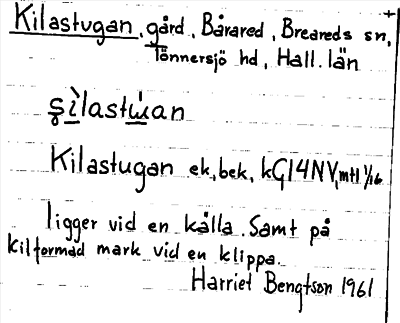 Kilastugan, gård, Bårared, Breareds sn,
Tönnersjö hd, Hall. län
Kilastugan ek, bek, kG14NV, mtl 1/16
ligger vid en källa. Samt på
kilformad mark vid en klippa.
Harriet Bengtson 1961